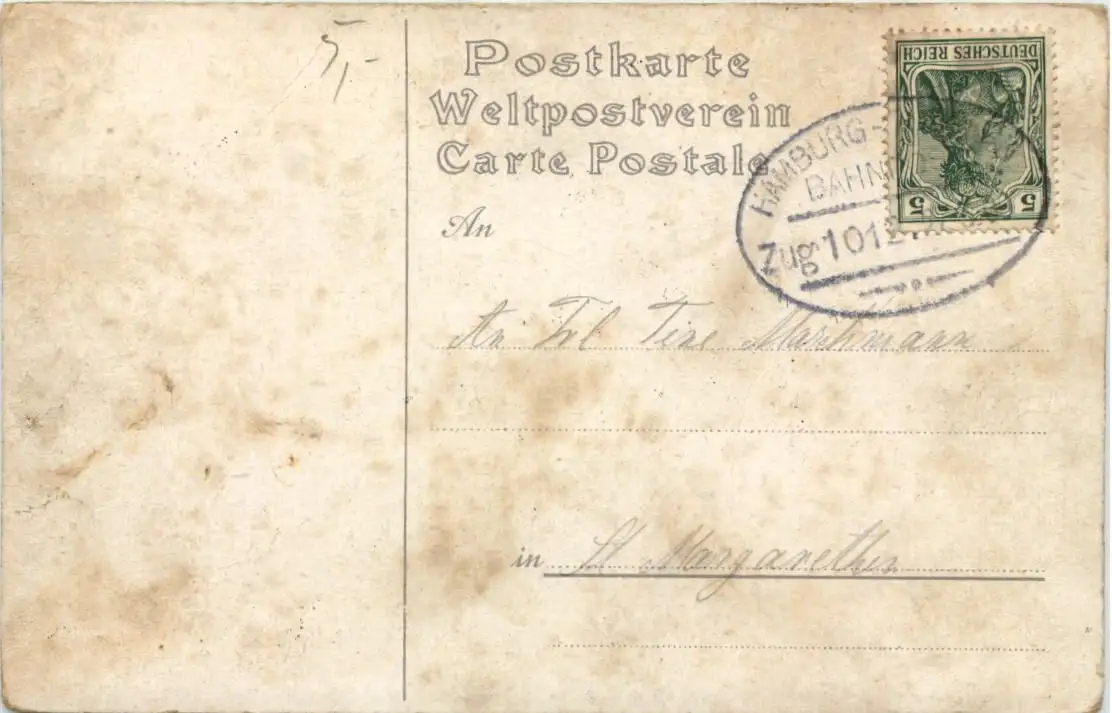 5,-
Postkarte
Weltpostverein
Carte Postale
DEUTSCHES REICH
5 5
HAMBURG -
BAHN
Zug 1012
An
An Frl Tine Marthmann
in St Margarethen